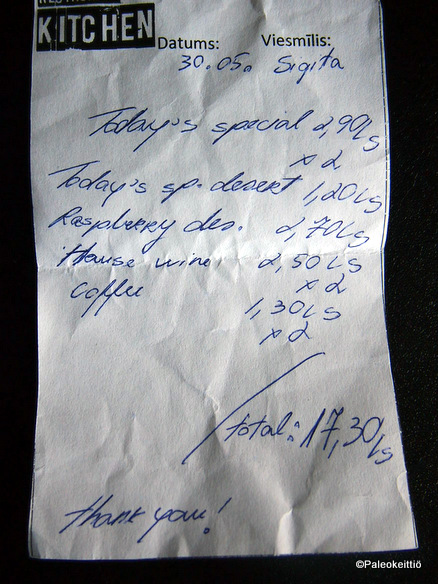 KITCHEN
Datums: Viesmīlis:
30.05. Sigita
Today's special 2,90Ls
x 2
Today's sp. desert 1,20Ls
Raspberry des. 2,70Ls
House wine 2,50Ls
x 2
coffee 1,30Ls
x 2
total: 17,30Ls
thank you!
©Paleokeittiö